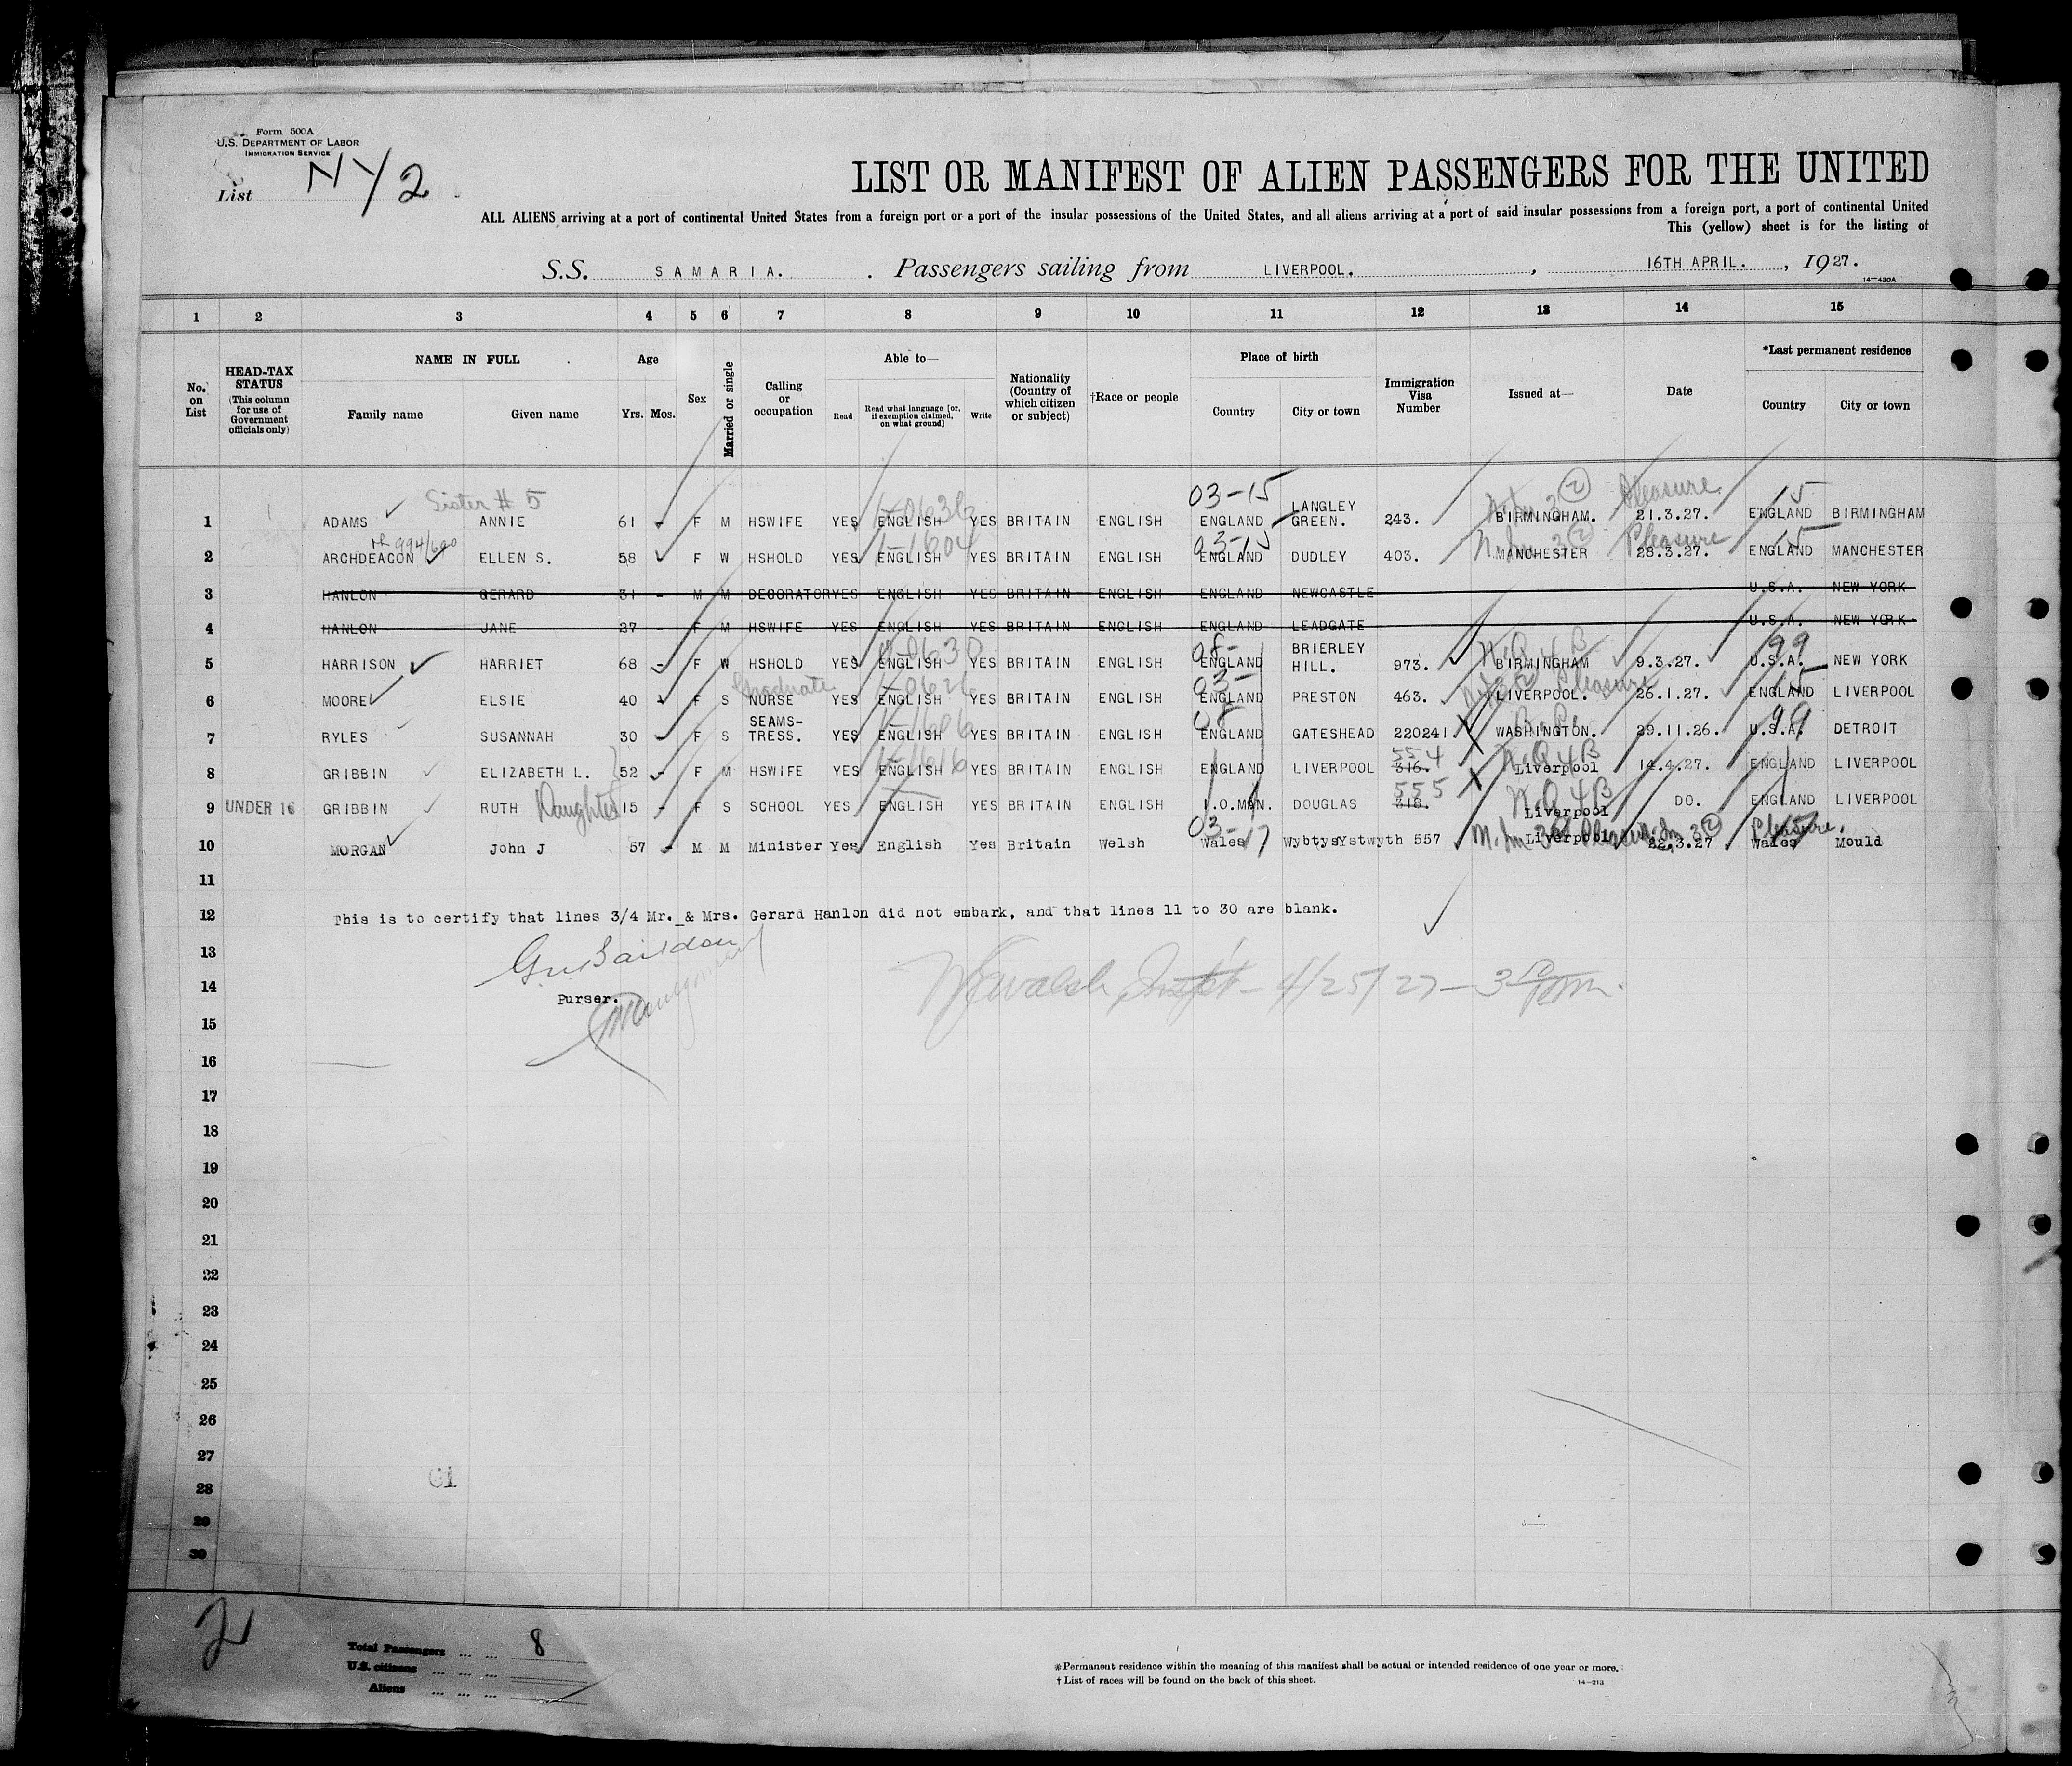 Form 500A
U.S. DEPARTMENT OF LABOR
IMMIGRATION SERVICE
List NY 2
LIST OR MANIFEST OF ALIEN PASSENGERS FOR THE UNITED
ALL ALIENS arriving at a port of continental United States from a foreign port or a port of the insular possessions of the United States, and all aliens arriving at a port of said insular possessions from a foreign port, a port of continental United
This (yellow) sheet is for the listing of
S.S. SAMARIA. . Passengers sailing from LIVERPOOL. , 16TH APRIL. , 1927.
14—430A
1 2 3 4 5 6 7 8 9 10 11 12 13 14 15
No. on List
HEAD-TAX STATUS (This column for use of Government officials only)
NAME IN FULL
Family name Given name
Age
Yrs. Mos.
Sex
Married or single
Calling or occupation
Able to—
Read Read what language [or, if exemption claimed, on what ground] Write
Nationality (Country of which citizen or subject)
†Race or people
Place of birth
Country City or town
Immigration Visa Number
Issued at—
Date
*Last permanent residence
Country City or town
Sister # 5 1-0636 03-15 Pleasure 15
1 ADAMS ANNIE 61 - F M HSWIFE YES ENGLISH YES BRITAIN ENGLISH ENGLAND LANGLEY GREEN. 243. BIRMINGHAM. 21.3.27. ENGLAND BIRMINGHAM
1-1604 03-15 Pleasure 15
2 ARCHDEACON ELLEN S. 58 F W HSHOLD YES ENGLISH YES BRITAIN ENGLISH ENGLAND DUDLEY 403. MANCHESTER 28.3.27. ENGLAND MANCHESTER
3 HANLON GERARD 31 - M M DECORATOR YES ENGLISH YES BRITAIN ENGLISH ENGLAND NEWCASTLE U.S.A. NEW YORK
4 HANLON JANE 27 - F M HSWIFE YES ENGLISH YES BRITAIN ENGLISH ENGLAND LEADGATE U.S.A. NEW YORK
08- N.Q 4 B 99
5 HARRISON HARRIET 68 - F W HSHOLD YES ENGLISH YES BRITAIN ENGLISH ENGLAND BRIERLEY HILL. 973. BIRMINGHAM 9.3.27. U.S.A. NEW YORK
Graduate 03- Pleasure 15
6 MOORE ELSIE 40 F S NURSE YES ENGLISH YES BRITAIN ENGLISH ENGLAND PRESTON 463. LIVERPOOL. 26.1.27. ENGLAND LIVERPOOL
1-1606 08 99
7 RYLES SUSANNAH 30 - F S SEAMS-TRESS. YES ENGLISH YES BRITAIN ENGLISH ENGLAND GATESHEAD 220241. WASHINGTON. 29.11.26. U.S.A. DETROIT
1-1616 554 N.Q 4 B
8 GRIBBIN ELIZABETH L. 52 F M HSWIFE YES ENGLISH YES BRITAIN ENGLISH ENGLAND LIVERPOOL 316. Liverpool 14.4.27. ENGLAND LIVERPOOL
555 N.Q 4 B
9 UNDER 16 GRIBBIN RUTH Daughter 15 - F S SCHOOL YES ENGLISH YES BRITAIN ENGLISH I.O.MAN. DOUGLAS 318. Liverpool DO. ENGLAND LIVERPOOL
03-17 Pleasure.
10 MORGAN John J 57 - M M Minister Yes English Yes Britain Welsh Wales WybtysYstwyth 557 Liverpool 22.3.27 Wales Mould
11
12 This is to certify that lines 3/4 Mr. & Mrs. Gerard Hanlon did not embark, and that lines 11 to 30 are blank.
13
14 Purser. 4/25/27 - 3
15
16
17
18
19
20
21
22
23
24
25
26
27
28
29
30
2
Total Passengers ... ... 8
U.S. citizens ... ... ...
Aliens ... ... ...
*Permanent residence within the meaning of this manifest shall be actual or intended residence of one year or more.
† List of races will be found on the back of this sheet. 14—213